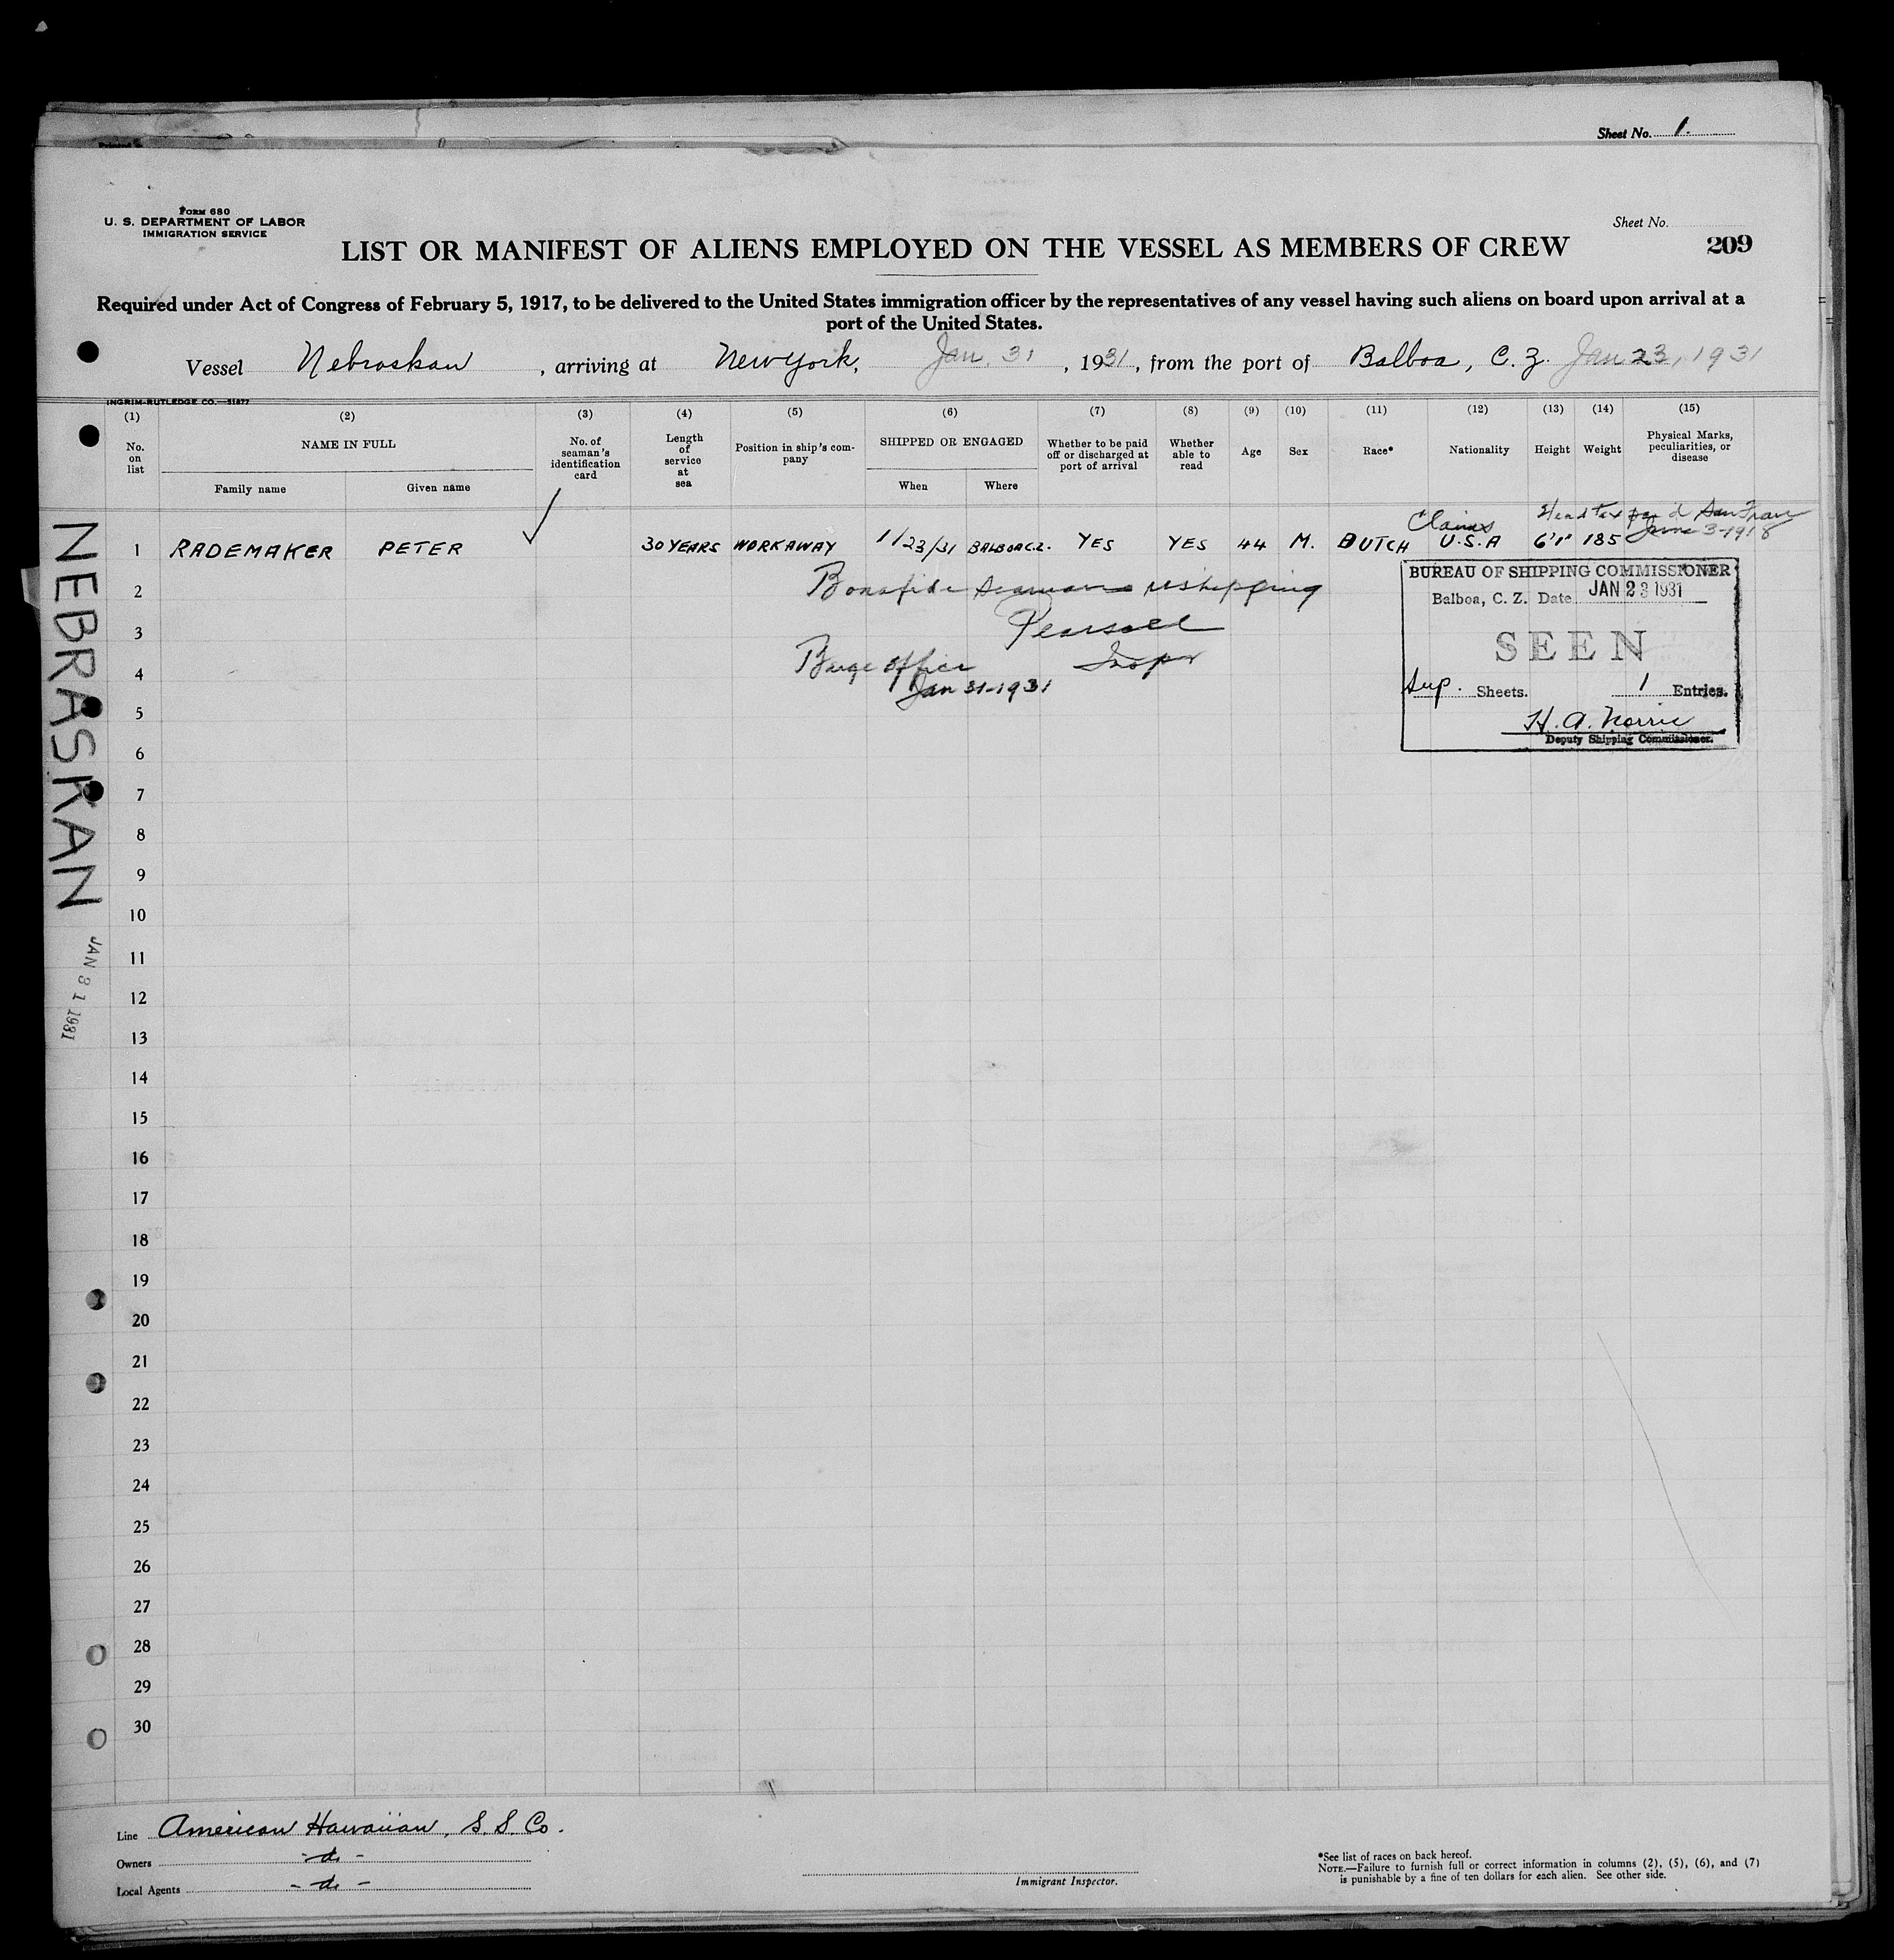 Sheet No. 1.
FORM 680
U. S. DEPARTMENT OF LABOR
IMMIGRATION SERVICE
Sheet No.
LIST OR MANIFEST OF ALIENS EMPLOYED ON THE VESSEL AS MEMBERS OF CREW
209
Required under Act of Congress of February 5, 1917, to be delivered to the United States immigration officer by the representatives of any vessel having such aliens on board upon arrival at a
port of the United States.
Vessel Nebraskan, arriving at New York, Jan. 31, 1931, from the port of Balboa, C. Z. Jan 23, 1931
INGRIM-RUTLEDGE CO.—51877
(1) (2) (3) (4) (5) (6) (7) (8) (9) (10) (11) (12) (13) (14) (15)
No. on list NAME IN FULL No. of seaman's identification card Length of service at sea Position in ship's company SHIPPED OR ENGAGED Whether to be paid off or discharged at port of arrival Whether able to read Age Sex Race* Nationality Height Weight Physical Marks, peculiarities, or disease
Family name Given name When Where
Claims Head tax paid San Fran
June 3-1918
1 RADEMAKER PETER 30 YEARS WORKAWAY 1/23/31 BALBOA C.Z. YES YES 44 M. DUTCH U.S.A 6'1" 185
2 Bonafide seaman reshipping
3 Pearsall
4 Barge office Inspr
Jan 31-1931
5
6
7
8
9
10
11
12
13
14
15
16
17
18
19
20
21
22
23
24
25
26
27
28
29
30
BUREAU OF SHIPPING COMMISSIONER
Balboa, C. Z. Date JAN 23 1931
SEEN
Sup. Sheets. 1 Entries.
H. A. Norric
Deputy Shipping Commissioner.
NEBRASKAN
JAN 31 1931
Line American Hawaiian, S.S. Co.
Owners - do -
Local Agents - do -
Immigrant Inspector.
*See list of races on back hereof.
NOTE.—Failure to furnish full or correct information in columns (2), (5), (6), and (7)
is punishable by a fine of ten dollars for each alien. See other side.